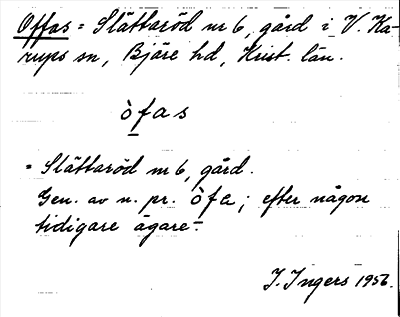 Offas = Slättaröd nr 6, gård i V. Ka-
rups sn, Bjäre hd, Krist. län.
òfas
= Slättaröd nr 6, gård.
Gen. av n. pr. òfa; efter någon
tidigare ägare.
I. Ingers 1956.